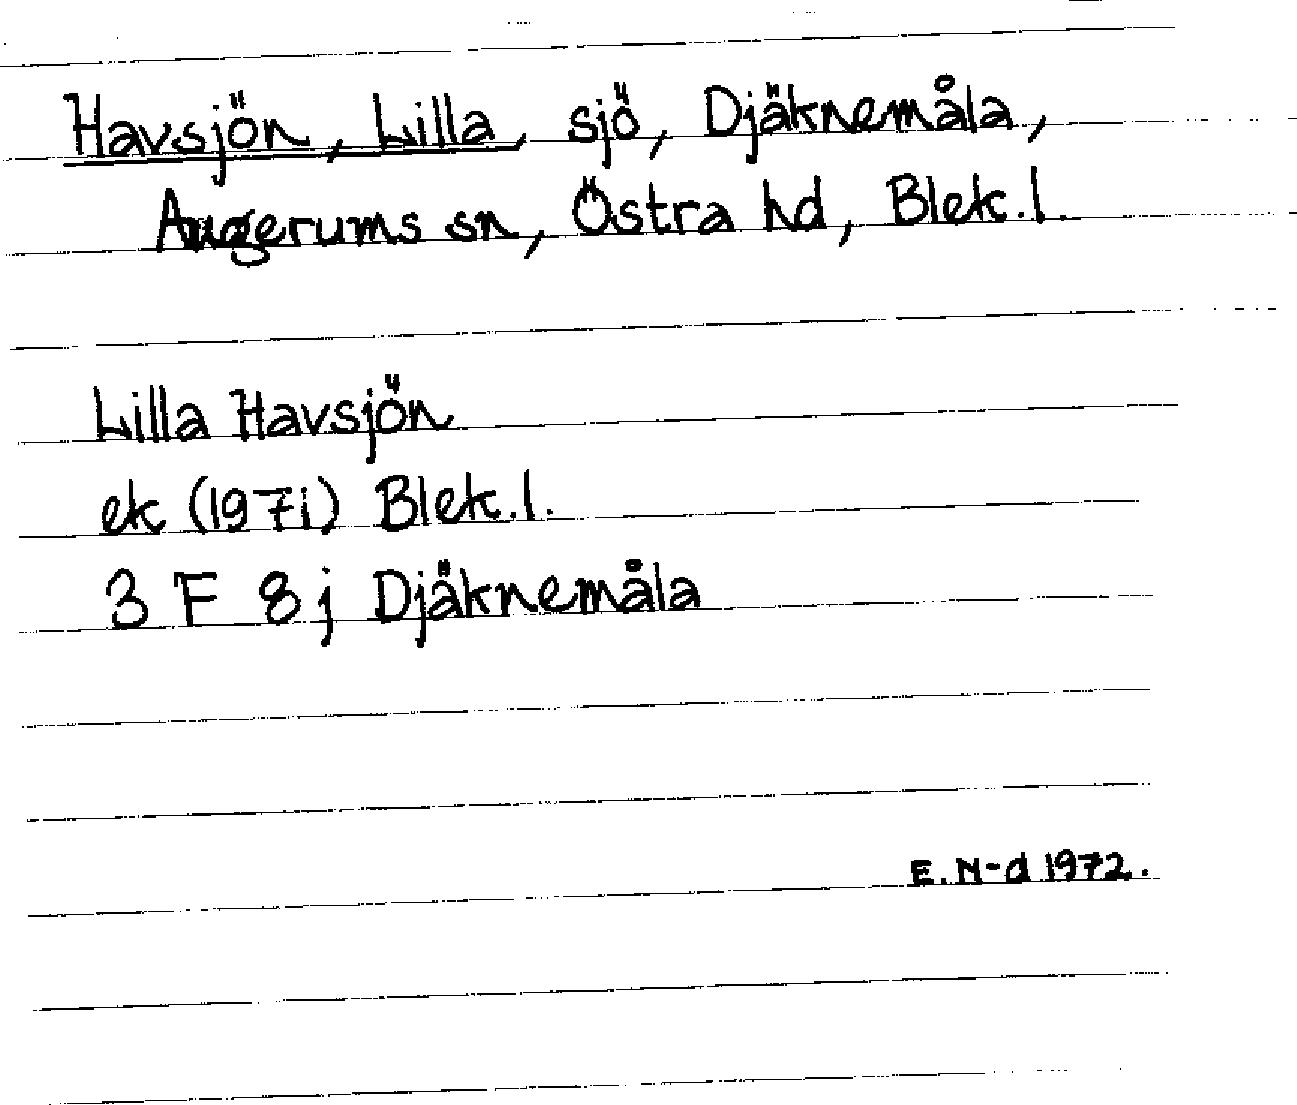 Havsjön, Lilla, sjö, Djäknemåla,
Augerums sn, Östra hd, Blek.l.
Lilla Havsjön
ek (1971) Blek.l.
3 F 8j Djäknemåla
E.N-d 1972.